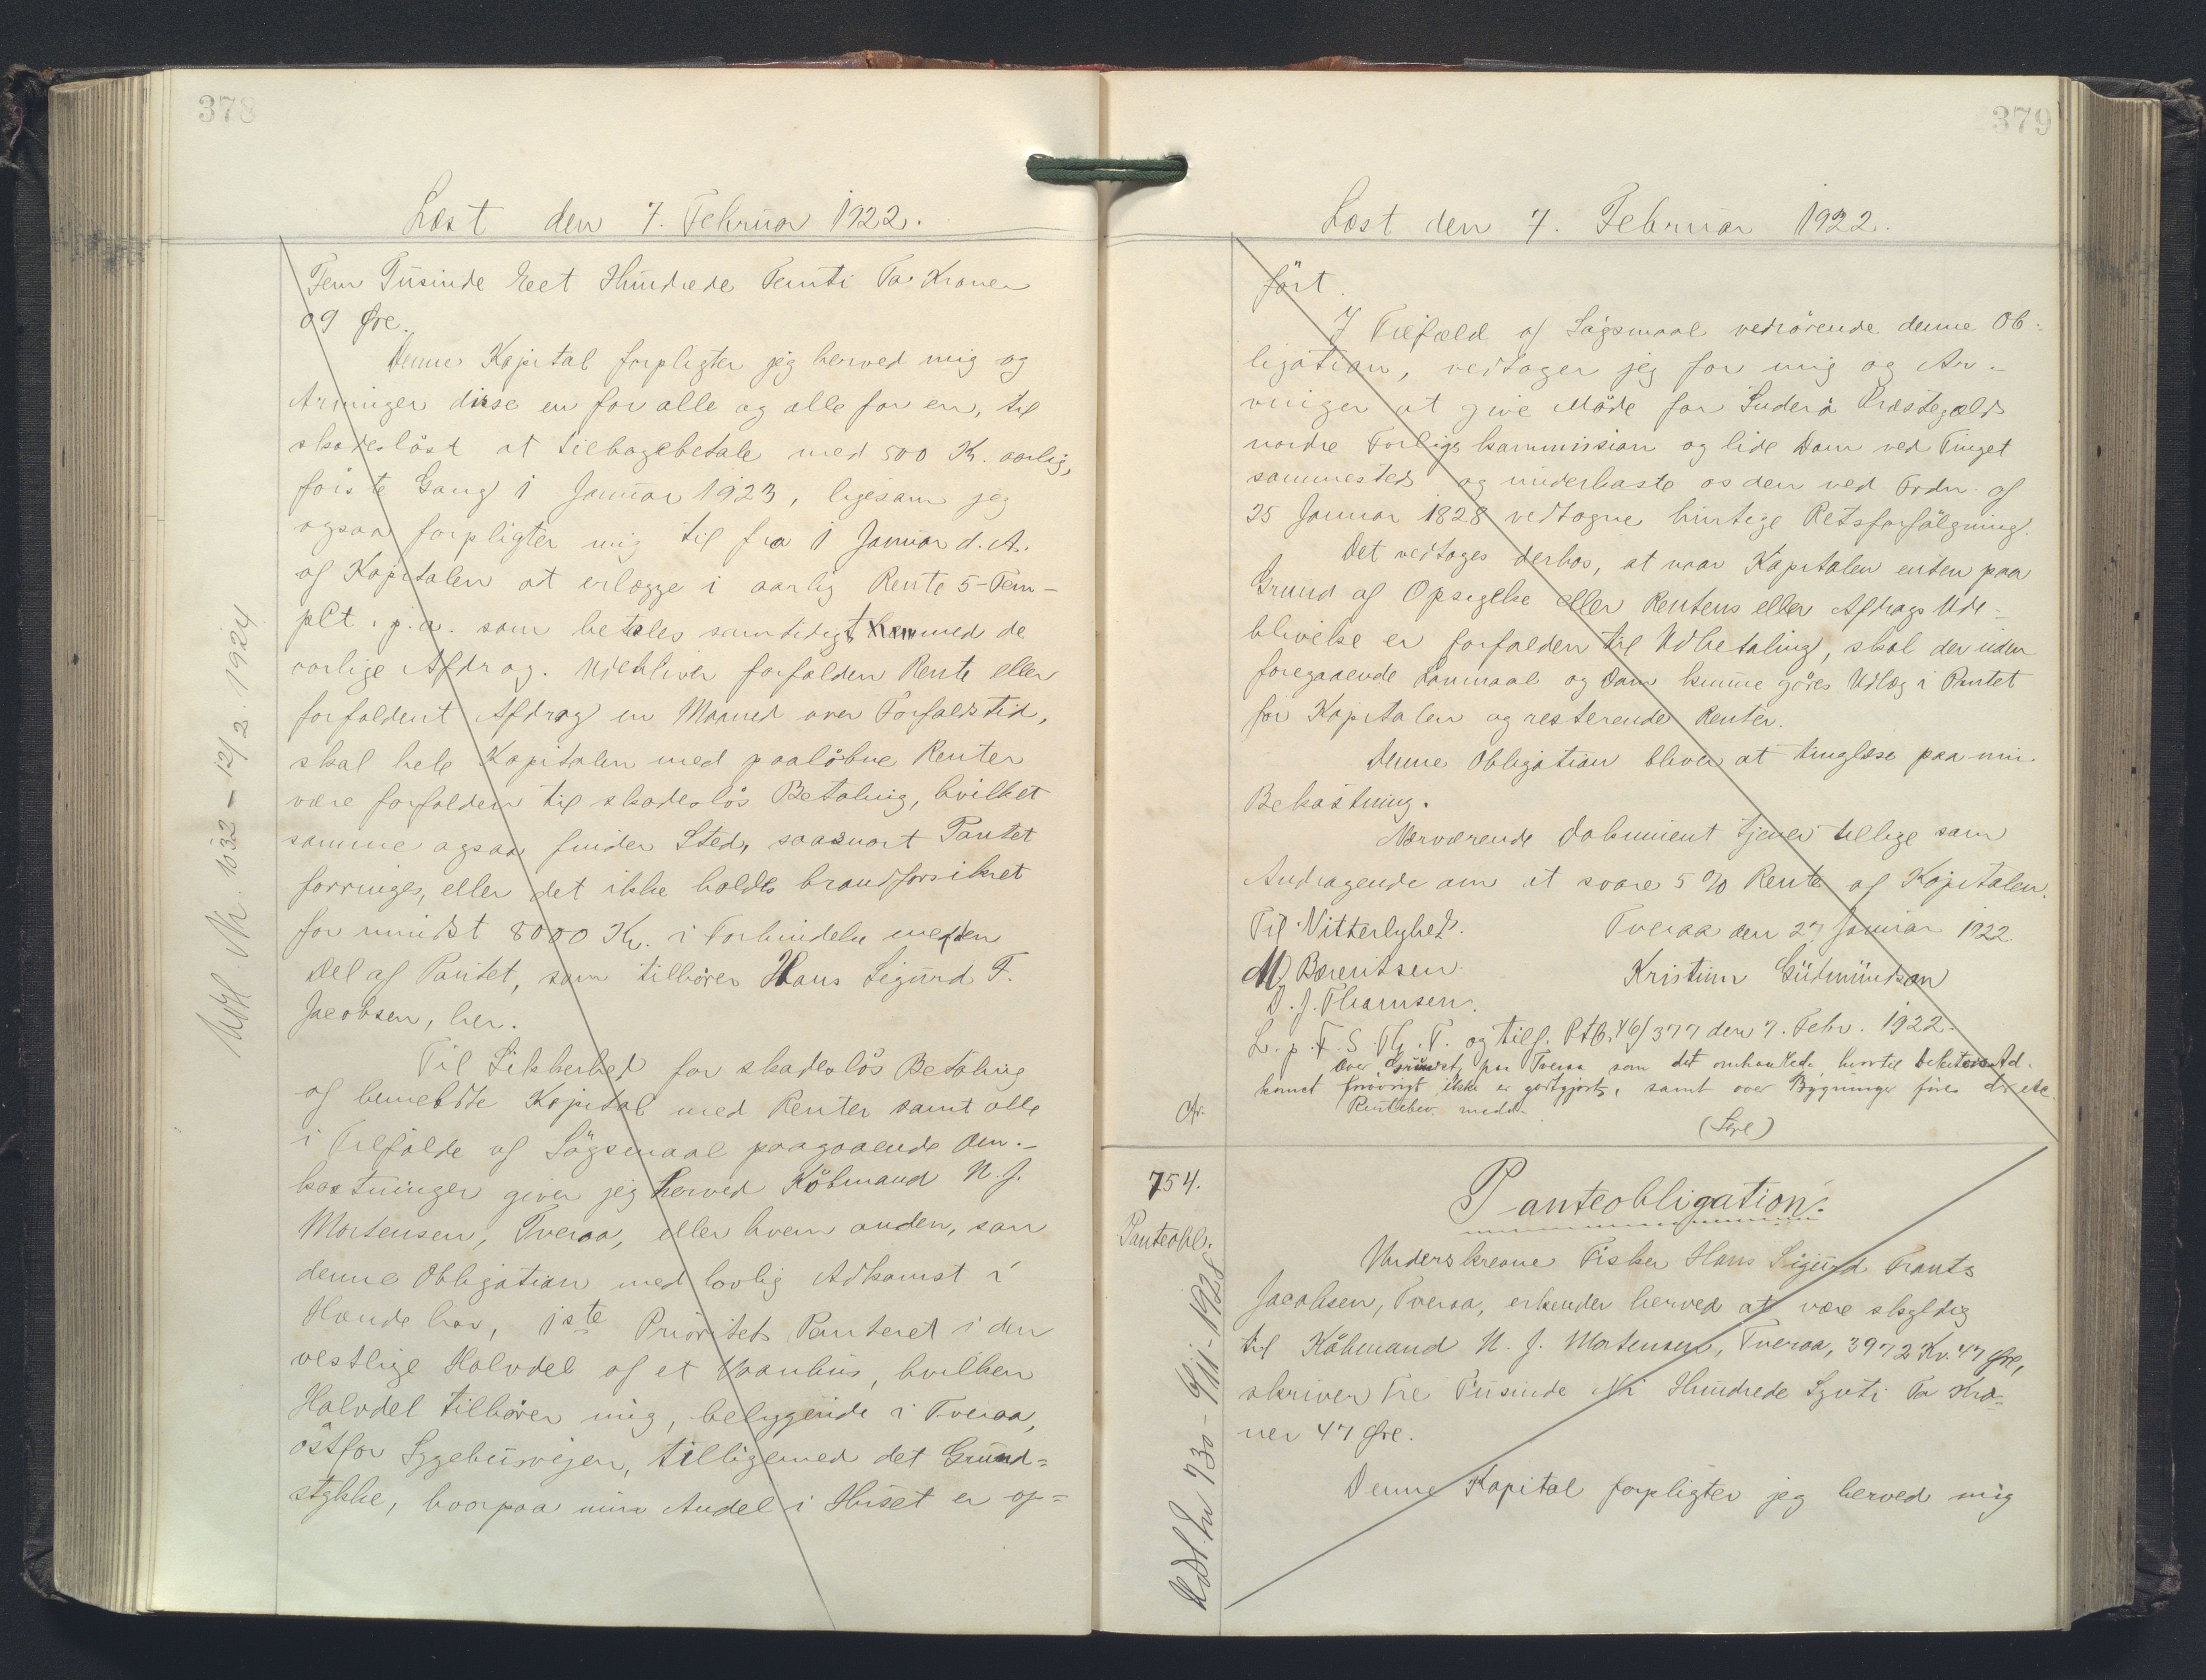 378
Læst den 7. Februar 1922.
Fem Tusinde Eet Hundrede Femti To Kroner
09 Øre.
Denne Kapital forpligter jeg herved mig og
Arvinger disse en for alle og alle for en, til
skadesløst at tilbagebetale med 500 Kr. aarlig,
første Gang i Januar 1923, ligesom jeg
ogsaa forpligter mig til fra 1 Januar d. A.
af Kapitalen at erlægge i aarlig Rente 5-Fem-
pCt. p.a. som betales samtidigt med de
aarlige Afdrag. Udebliver forfalden Rente eller
forfaldent Afdrag en Maaned over Forfaldstid,
skal hele Kapitalen med paaløbne Renter
være forfalden til skadesløs Betaling, hvilket
samme ogsaa finder Sted, saasnart Pantet
forringes, eller det ikke holdes brandforsikret
for mindst 8000 Kr. i Forbindelse med den
Del af Pantet, som tilhører Hans Sigurd F.
Jacobsen, her.
Til Sikkerhed for skadesløs Betaling
af bemeldte Kapital med Renter samt alle
i Tilfælde af Søgsmaal paagaaende Om-
kostninger giver jeg herved Købmand N. J.
Mortensen, Tveraa, eller hvem anden, som
denne Obligation med lovlig Adkomst i
Hænde har, 1ste Prioritets Panteret i den
vestlige Halvdel af et Vaanhus, hvilken
Halvdel tilhører mig, beliggende i Tveraa,
østfor Sygehusvejen, tilligemed det Grund=
stykke, hvorpaa min Andel i Huset er op=
Udsl. Nr. 1032 - 12/2. 1924
379
Læst den 7. Februar 1922.
ført.
I Tilfæld af Søgsmaal vedrørende denne Ob-
ligation, vedtager jeg for mig og Ar-
vinger at give Møde for Suderø Præstegælds
nordre Forligskommission og lide Dom ved Tinget
sammesteds og underkaste os den ved Frdn. af
25 Januar 1828 vedtagne hurtige Retsforfølgning.
Det vedtages derhos, at naar Kapitalen enten paa
Grund af Opsigelse eller Rentens eller Afdrags Ude=
blivelse er forfalden til Udbetaling, skal der uden
foregaaende Lovmaal og Dom kunne gøres Udlæg i Pantet
for Kapitalen og resterende Renter.
Denne Obligation bliver at tinglæse paa min
Bekostning.
Nærværende Dokument tjener tillige som
Andragende om at svare 5 % Rente af Kapitalen.
Til Vitterlighed.
Tveraa den 27 Januar 1922.
M. Bærentsen
Kristinn Güdmündson
D. J. Thomsen.
L. p. F. S. Th. T. og tilf. Ptb. 46/377 den 7. Febr. 1922.
Over Grundet, paa Tveraa som det omhandlede, hvortil Debitors Ad-
komst forøvrigt ikke er godtgjort, samt over Bygninger
Rentebev. medd.
Afr.
754.
Panteobl.
Panteobligation.
Underskrevne Fisker Hans Sigurd Frants
Jacobsen, Tveraa, erkender herved at være skyldig
til Købmand N. J. Mortensen, Tveraa, 3972 Kr. 47 Øre,
skriver Tre Tusinde Ni Hundrede Syvti To Kro-
ner 47 Øre.
Denne Kapital forpligter jeg herved mig
Udsl. Nr 730 - 9/11 - 1928